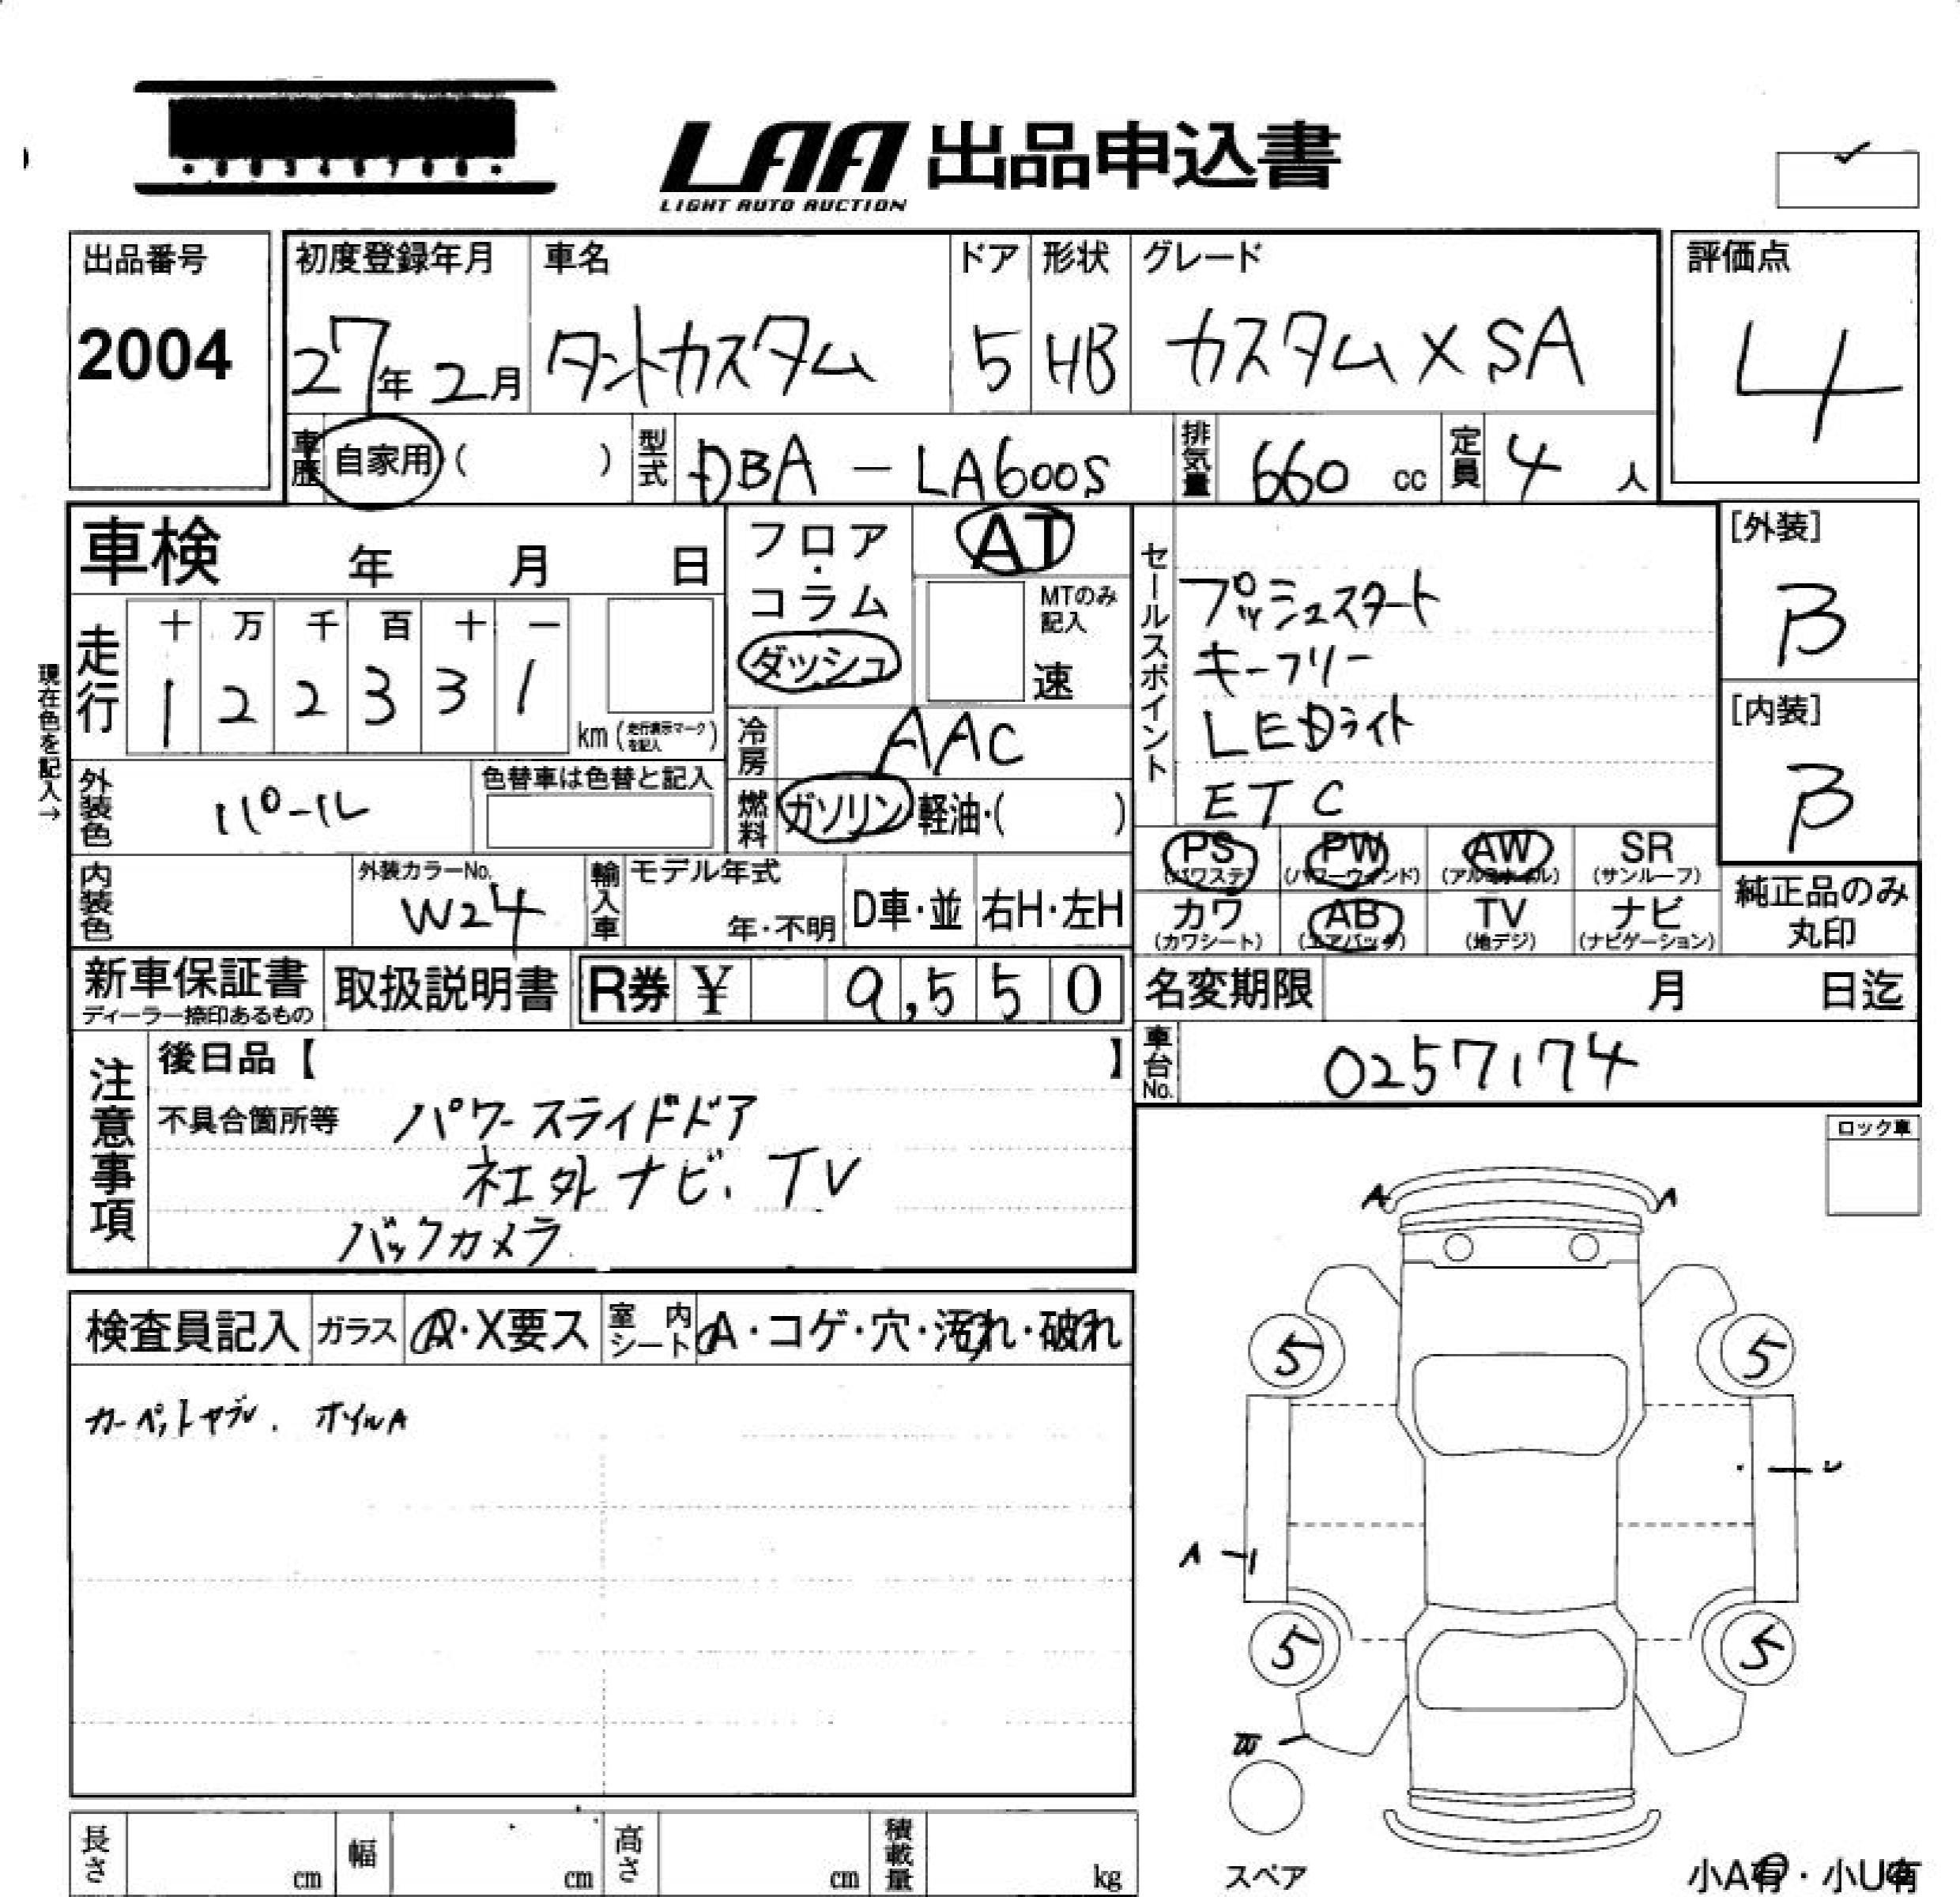 LAA 出品申込書
LIGHT AUTO AUCTION
出品番号
2004
初度登録年月
27年2月
車名
タントカスタム
ドア
5
形状
HB
グレード
カスタム X SA
評価点
4
車歴 自家用 ( )
型式 DBA - LA600S
排気量 660 cc
定員 4 人
車検 年 月 日
フロア・コラム
ダッシュ
AT
MTのみ記入
速
セールスポイント
プッシュスタート
キーフリー
LEDライト
ETC
[外装]
B
[内装]
B
現在色を記入→
走行
十 万 千 百 十 一
1 2 2 3 3 1
km (走行表示マークを記入)
冷房 AAC
燃料 ガソリン 軽油・( )
外装色 パール
色替車は色替と記入
PS (パワステ)
PW (パワーウィンド)
AW (アルミホイル)
SR (サンルーフ)
カワ (カワシート)
AB (エアバッグ)
TV (地デジ)
ナビ (ナビゲーション)
純正品のみ
丸印
内装色
外装カラーNo.
W24
輸入車
モデル年式
年・不明
D車・並
右H・左H
新車保証書
ディーラー捺印あるもの
取扱説明書
R券 ¥ 9,550
名変期限 月 日迄
車台No. 0257174
注意事項
後日品【 】
不具合箇所等 パワースライドドア
社外ナビ、TV
バックカメラ
ロック車
検査員記入
ガラス A・X要ス
室内シート A・コゲ・穴・汚れ・破れ
カーペットヤブレ、ホイルA
A A
5 5
U
A
5 5
スペア
小A有・小U有
長さ cm
幅 cm
高さ cm
積載量 kg